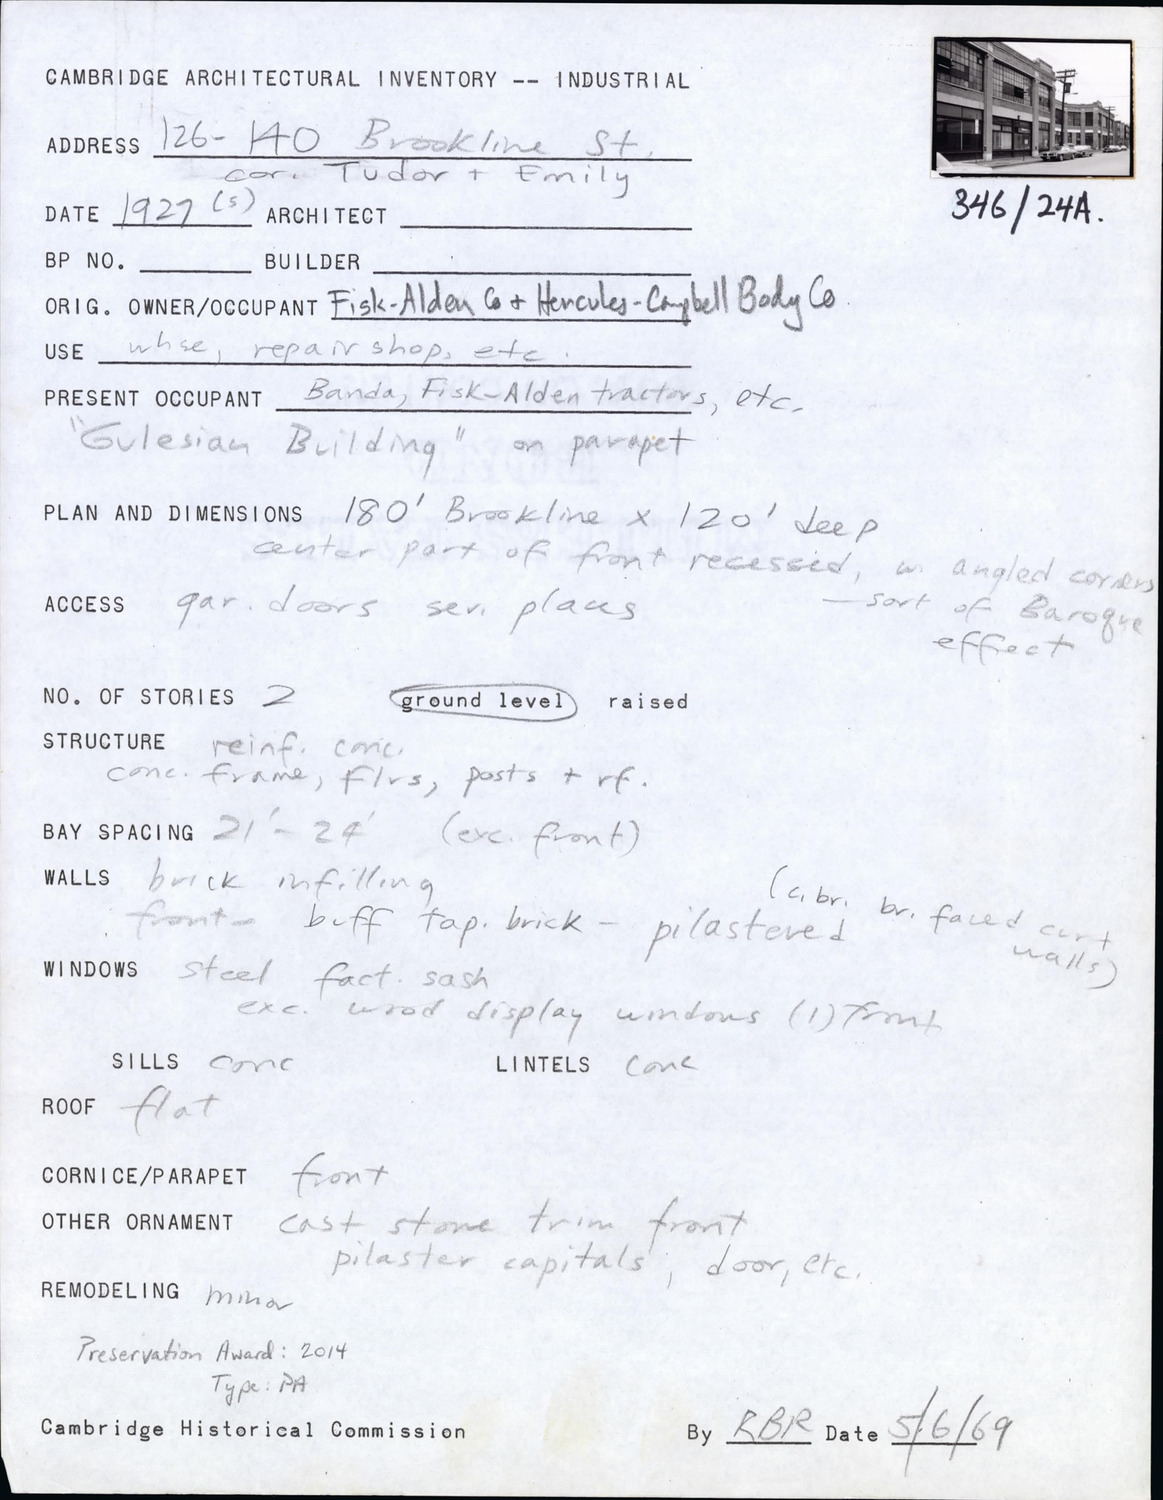 CAMBRIDGE ARCHITECTURAL INVENTORY -- INDUSTRIAL
ADDRESS 126-140 Brookline St.
cor. Tudor + Emily
346/24A.
DATE 1927 (s) ARCHITECT
BP NO. BUILDER
ORIG. OWNER/OCCUPANT Fisk-Alden Co + Hercules-Campbell Body Co
USE whse, repair shop, etc.
PRESENT OCCUPANT Banda, Fisk-Alden tractors, etc.
"Gulesian Building" on parapet
PLAN AND DIMENSIONS 180' Brookline x 120' deep
center part of front recessed, w. angled corners
— sort of Baroque
effect
ACCESS gar. doors sev. places
NO. OF STORIES 2 ground level raised
STRUCTURE reinf. conc.
conc. frame, flrs, posts + rf.
BAY SPACING 21'-24' (exc. front)
WALLS brick infilling
front - buff tap. brick - pilastered
br. faced curt
walls)
WINDOWS steel fact. sash
exc. wood display windows (1) front
SILLS conc LINTELS conc
ROOF flat
CORNICE/PARAPET front
OTHER ORNAMENT cast stone trim front
pilaster capitals, door, etc.
REMODELING minor
Preservation Award: 2014
Type: PA
Cambridge Historical Commission By RBR Date 5/6/69